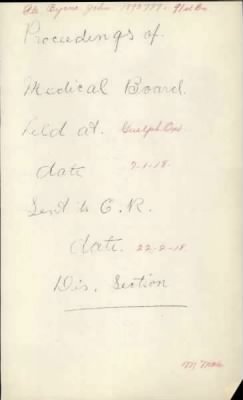 Pte Byrne John 9
Proceedings of
Medical Board.
held at. Guelph Ont
date 7-1-18.
Sent to C. R.
date. 22-2-18
Dis. Section